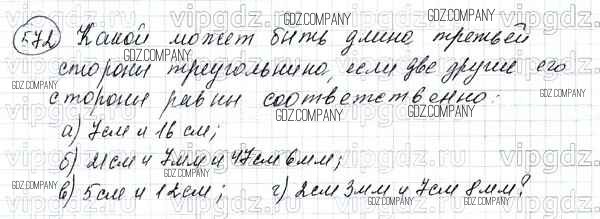 572 Какой может быть длина третьей
стороны треугольника, если две другие его
стороны равны соответственно:
а) 7см и 16 см;
б) 21см и 7мм и 47см 6мм;
в) 5см и 12см; г) 2см 3мм и 7см 8мм?
GDZ.COMPANY
vipgdz.com